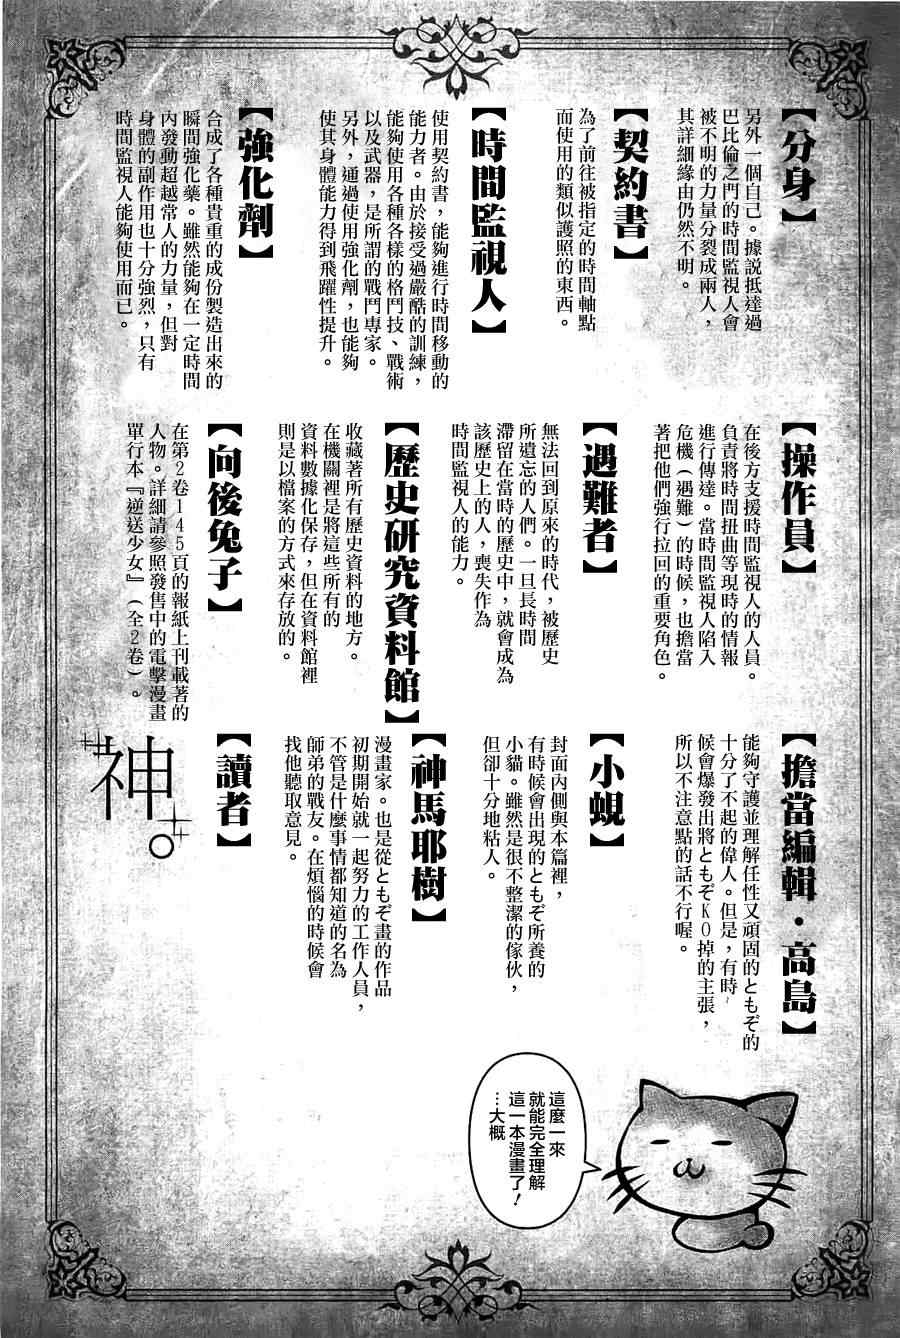 【分身】
另外一個自己。據說抵達過
巴比倫之門的時間監視人會
被不明的力量分裂成兩人，
其詳細緣由仍然不明。
【契約書】
為了前往被指定的時間軸點
而使用的類似護照的東西。
【時間監視人】
使用契約書，能夠進行時間移動的
能力者。由於接受過嚴酷的訓練，
能夠使用各種各樣的格鬥技、戰術
以及武器，是所謂的戰鬥專家。
另外，通過使用強化劑，也能夠
使其身體能力得到飛躍性提升。
【強化劑】
合成了各種貴重的成份製造出來的
瞬間強化藥。雖然能夠在一定時間
內發動超越常人的力量，但對
身體的副作用也十分強烈，只有
時間監視人能夠使用而已。
【操作員】
在後方支援時間監視人的人員。
負責將時間扭曲等現時的情報
進行傳達。當時間監視人陷入
危機（遇難）的時候，也擔當
著把他們強行拉回的重要角色。
【遇難者】
無法回到原來的時代，被歷史
所遺忘的人們。一旦長時間
滯留在當時的歷史中，就會成為
該歷史上的人，喪失作為
時間監視人的能力。
【歷史研究資料館】
收藏著所有歷史資料的地方。
在機關裡是將這些所有的
資料數據化保存，但在資料館裡
則是以檔案的方式來存放的。
【向後兔子】
在第2卷145頁的報紙上刊載著的
人物。詳細請參照發售中的電擊漫畫
單行本『逆送少女』（全2卷）。
【擔當編輯・高島】
能夠守護並理解任性又頑固的ともぞの
十分了不起的偉人。但是，有時
候會爆發出將ともぞKO掉的主張，
所以不注意點的話不行喔。
【小蜆】
封面內側與本篇裡，
有時候會出現的ともぞ所養的
小貓。雖然是很不整潔的傢伙，
但卻十分地粘人。
【神馬耶樹】
漫畫家。也是從ともぞ畫的作品
初期開始就一起努力的工作人員，
不管是什麼事情都知道的名為
師弟的戰友。在煩惱的時候會
找他聽取意見。
【讀者】
神。
這麼一來
就能完全理解
這一本漫畫了！
…大概